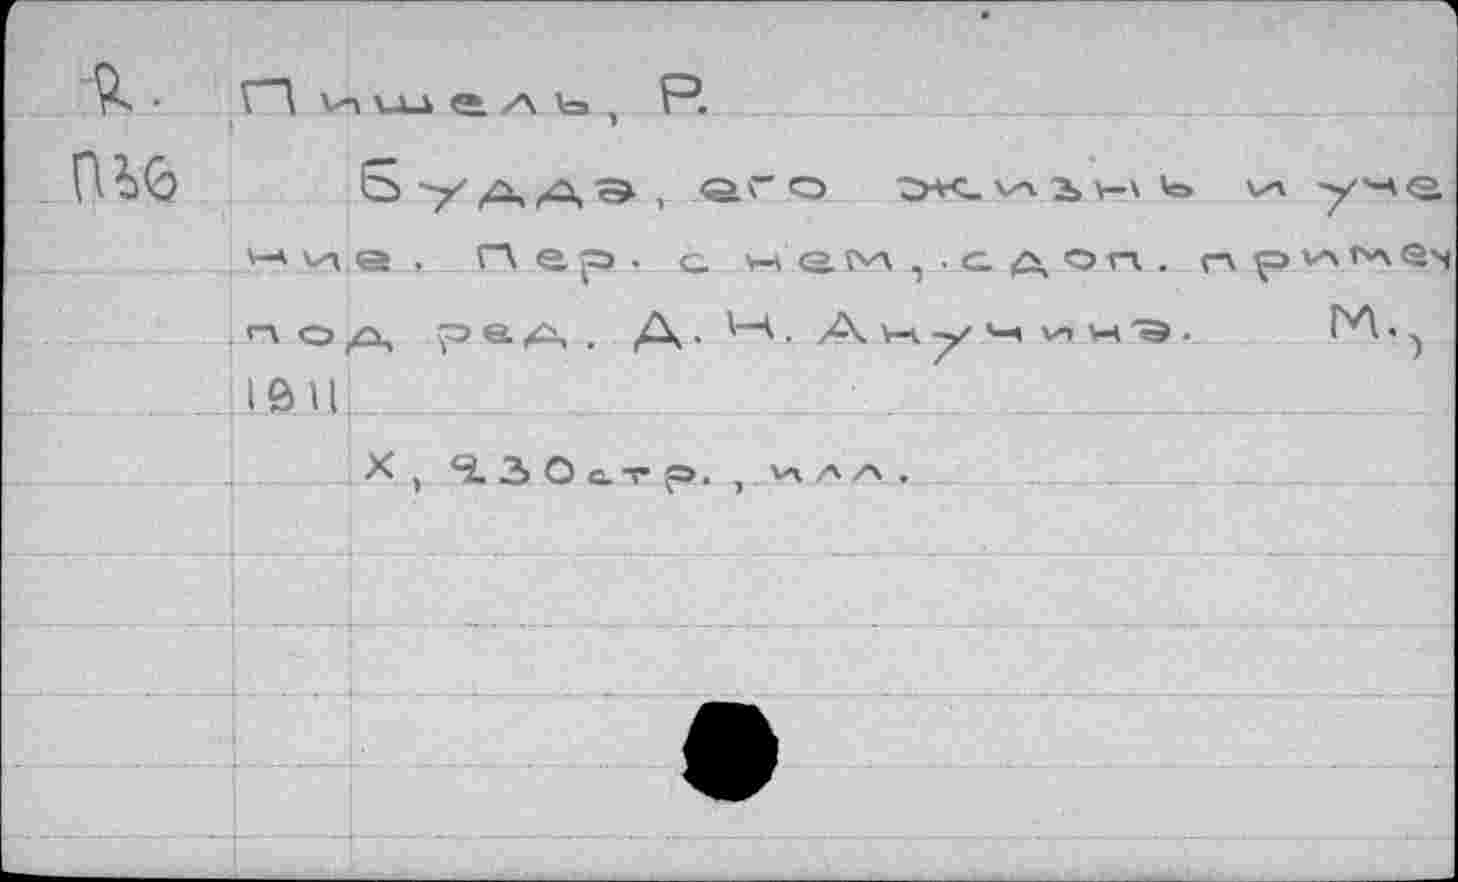 Я. Пишель, Р.
П36 Будда, его жизнь и уче
ние. Пер. с нем, с доп. примеч
под ред. Д. Н. Анучина. М.,
1911
X, 230 стр., илл.